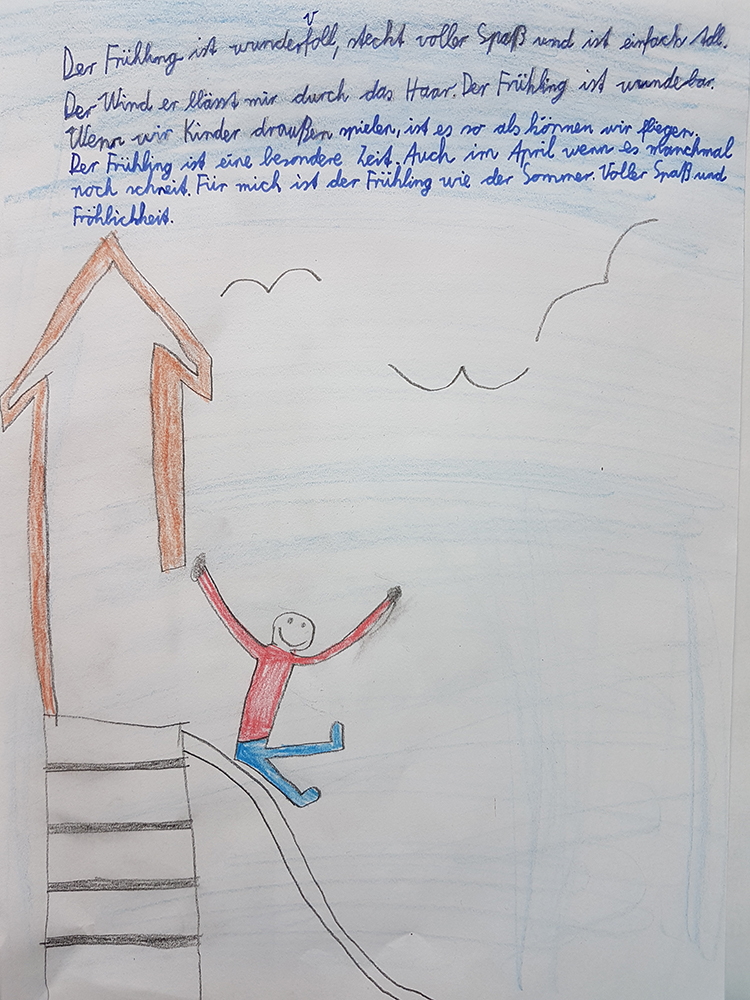 Der Frühling ist wundervoll, steckt voller Spaß und ist einfach toll.
Der Wind er bläst mir durch das Haar. Der Frühling ist wunderbar.
Wenn wir Kinder draußen spielen, ist es so als können wir fliegen.
Der Frühling ist eine besondere Zeit. Auch im April wenn es manchmal
noch schneit. Für mich ist der Frühling wie der Sommer. Voller Spaß und
Fröhlichkeit.